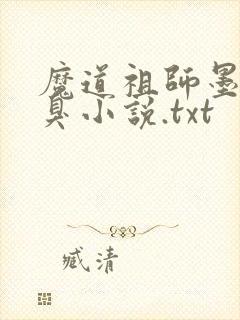 魔道祖師墨
臭小說.txt
臧清